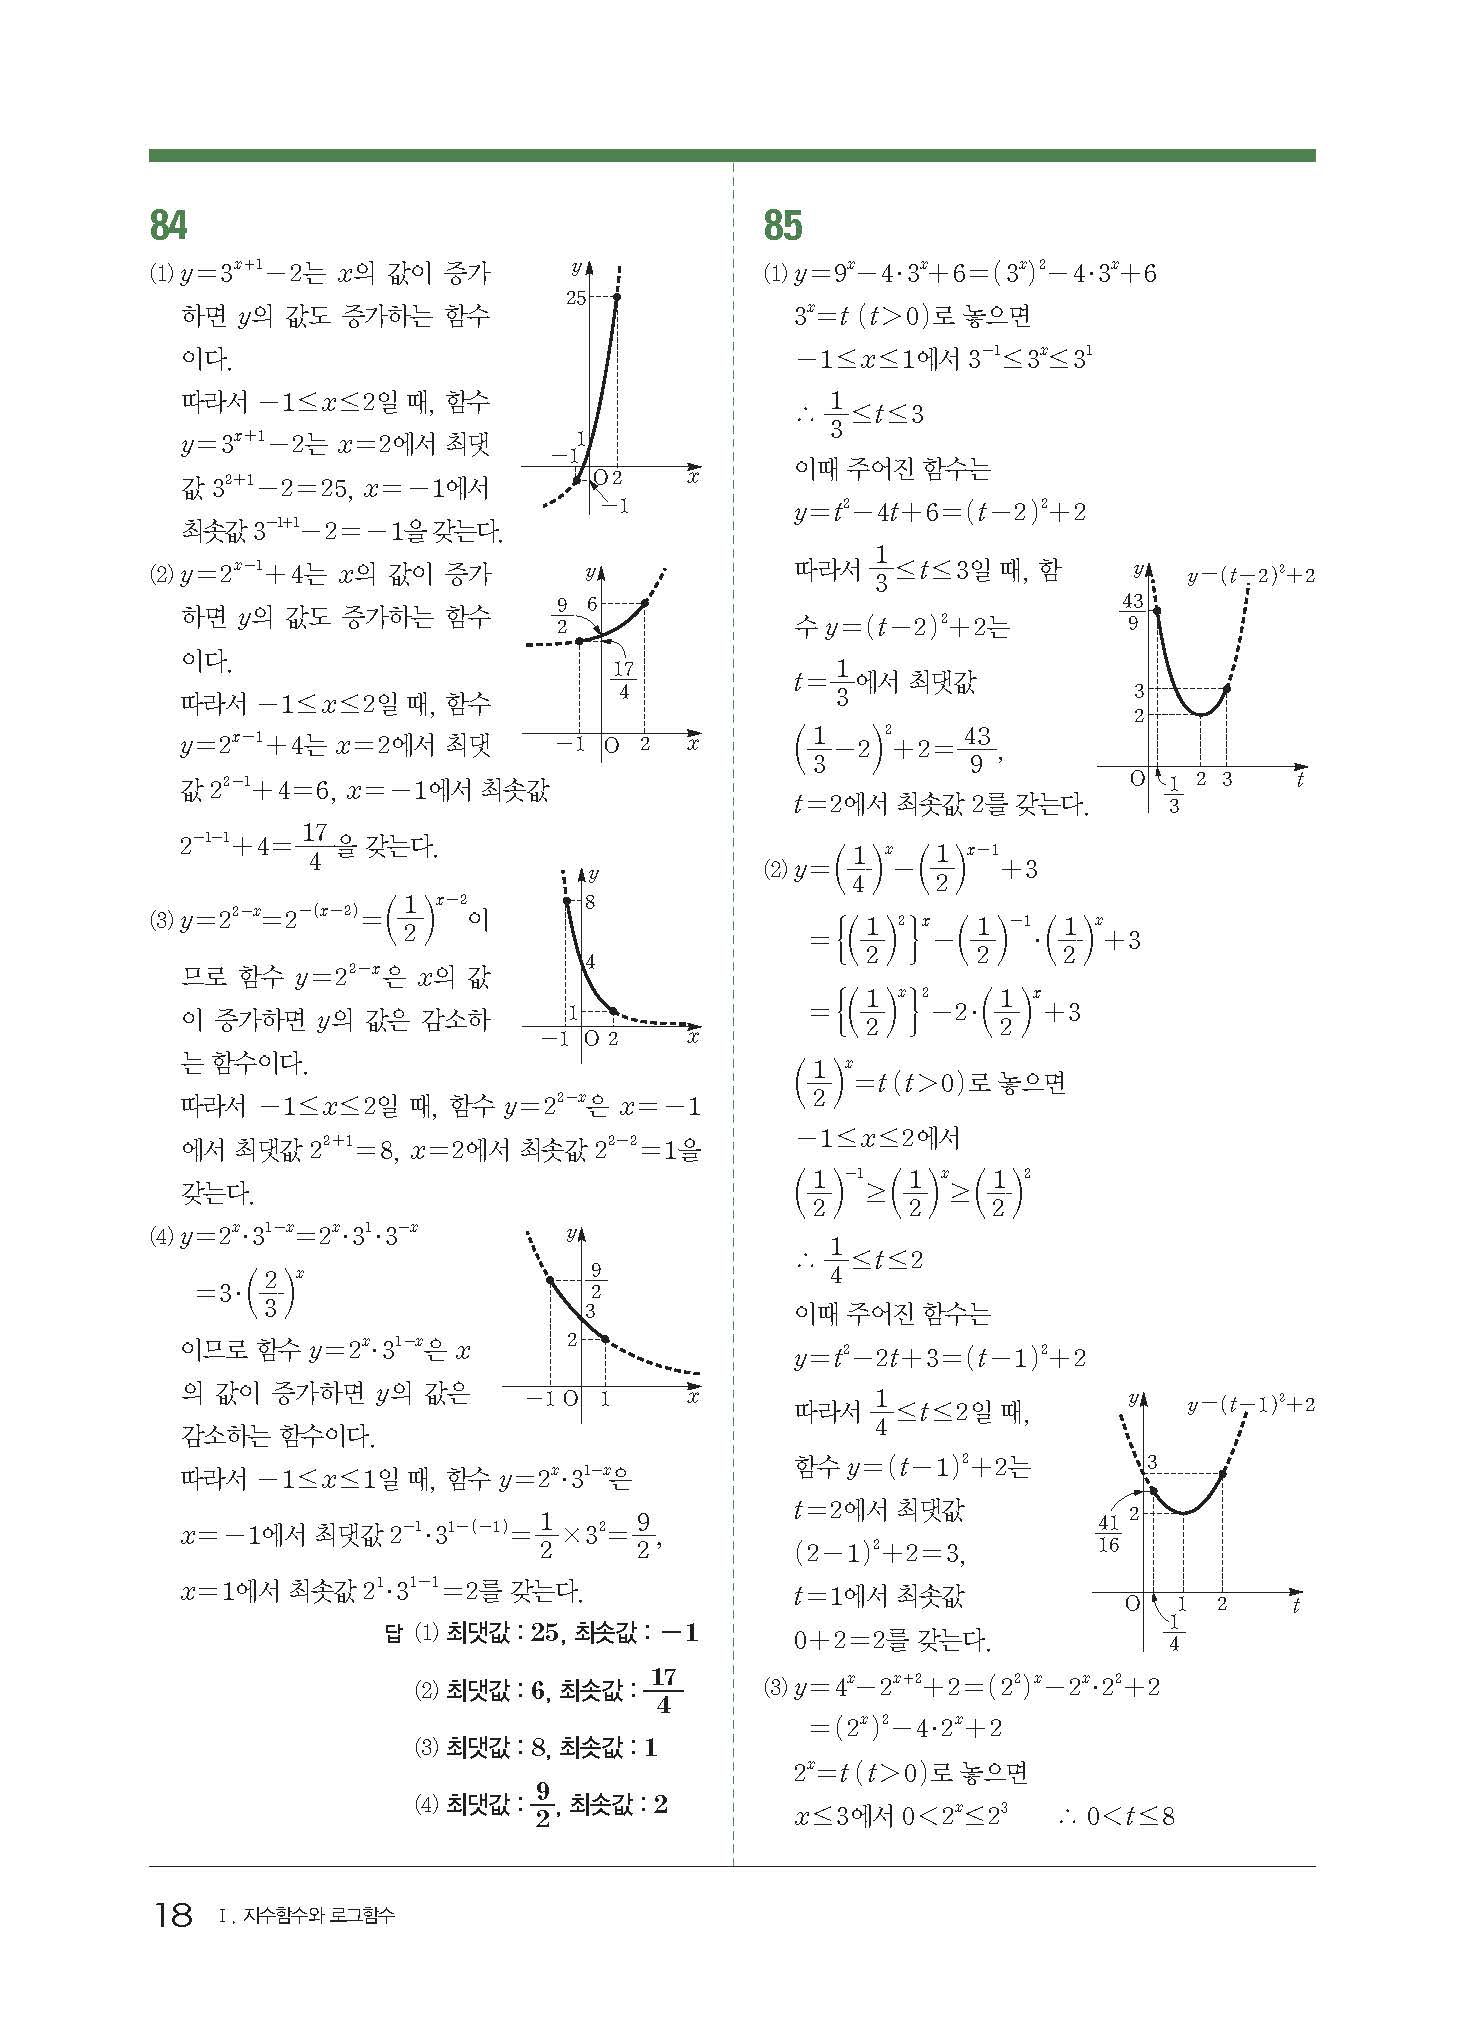 84
(1) y=3^{x+1}-2는 x의 값이 증가
하면 y의 값도 증가하는 함수
이다.
따라서 -1≤x≤2일 때, 함수
y=3^{x+1}-2는 x=2에서 최댓
값 3^{2+1}-2=25, x=-1에서
최솟값 3^{-1+1}-2=-1을 갖는다.
y
25
1
-1
O 2 x
-1
(2) y=2^{x-1}+4는 x의 값이 증가
하면 y의 값도 증가하는 함수
이다.
따라서 -1≤x≤2일 때, 함수
y=2^{x-1}+4는 x=2에서 최댓
값 2^{2-1}+4=6, x=-1에서 최솟값
2^{-1-1}+4=17/4을 갖는다.
y
9/2 6
17/4
-1 O 2 x
(3) y=2^{2-x}=2^{-(x-2)}=(1/2)^{x-2}이
므로 함수 y=2^{2-x}은 x의 값
이 증가하면 y의 값은 감소하
는 함수이다.
따라서 -1≤x≤2일 때, 함수 y=2^{2-x}은 x=-1
에서 최댓값 2^{2+1}=8, x=2에서 최솟값 2^{2-2}=1을
갖는다.
y
8
4
1
-1 O 2 x
(4) y=2^x·3^{1-x}=2^x·3^1·3^{-x}
=3·(2/3)^x
이므로 함수 y=2^x·3^{1-x}은 x
의 값이 증가하면 y의 값은
감소하는 함수이다.
따라서 -1≤x≤1일 때, 함수 y=2^x·3^{1-x}은
x=-1에서 최댓값 2^{-1}·3^{1-(-1)}=1/2×3^2=9/2,
x=1에서 최솟값 2^1·3^{1-1}=2를 갖는다.
y
9/2
3
2
-1 O 1 x
답 (1) 최댓값 : 25, 최솟값 : -1
(2) 최댓값 : 6, 최솟값 : 17/4
(3) 최댓값 : 8, 최솟값 : 1
(4) 최댓값 : 9/2, 최솟값 : 2
85
(1) y=9^x-4·3^x+6=(3^x)^2-4·3^x+6
3^x=t (t>0)로 놓으면
-1≤x≤1에서 3^{-1}≤3^x≤3^1
∴ 1/3≤t≤3
이때 주어진 함수는
y=t^2-4t+6=(t-2)^2+2
따라서 1/3≤t≤3일 때, 함
수 y=(t-2)^2+2는
t=1/3에서 최댓값
(1/3-2)^2+2=43/9,
t=2에서 최솟값 2를 갖는다.
y y=(t-2)^2+2
43/9
3
2
O 1/3 2 3 t
(2) y=(1/4)^x-(1/2)^{x-1}+3
={(1/2)^2}^x-(1/2)^{-1}·(1/2)^x+3
={(1/2)^x}^2-2·(1/2)^x+3
(1/2)^x=t (t>0)로 놓으면
-1≤x≤2에서
(1/2)^{-1}≥(1/2)^x≥(1/2)^2
∴ 1/4≤t≤2
이때 주어진 함수는
y=t^2-2t+3=(t-1)^2+2
따라서 1/4≤t≤2일 때,
함수 y=(t-1)^2+2는
t=2에서 최댓값
(2-1)^2+2=3,
t=1에서 최솟값
0+2=2를 갖는다.
y y=(t-1)^2+2
3
2
41/16
O 1/4 1 2 t
(3) y=4^x-2^{x+2}+2=(2^2)^x-2^x·2^2+2
=(2^x)^2-4·2^x+2
2^x=t (t>0)로 놓으면
x≤3에서 0<2^x≤2^3 ∴ 0<t≤8
18 Ⅰ. 지수함수와 로그함수